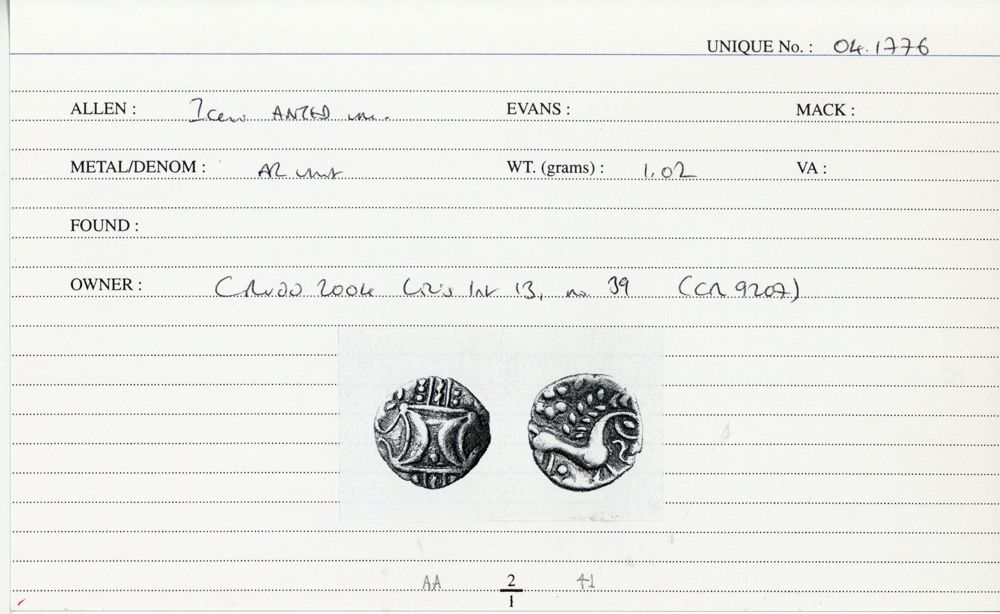 UNIQUE No. : 04.1776
ALLEN : Iceni ANTED EVANS : MACK :
METAL/DENOM : AR unit WT. (grams) : 1.02 VA :
FOUND :
OWNER : CR 2004 List 13, no 39 (CR 9207)
AA 2/1 41